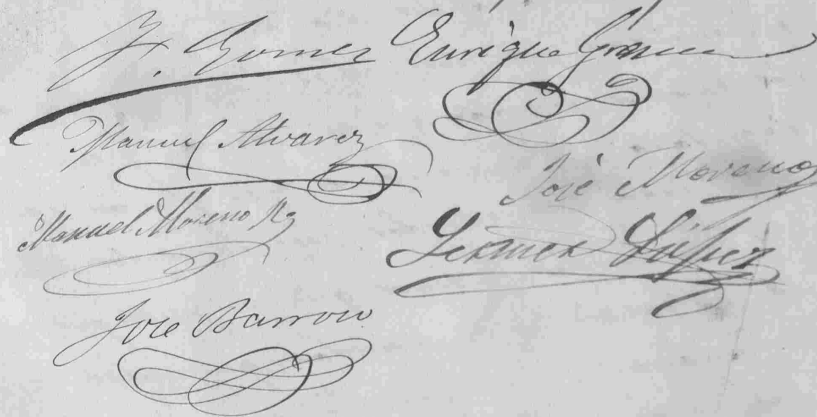 F. Gomez Enrique
Manuel Alvarez
José Moreno
Manuel Moreno Rz
López
José Barroso